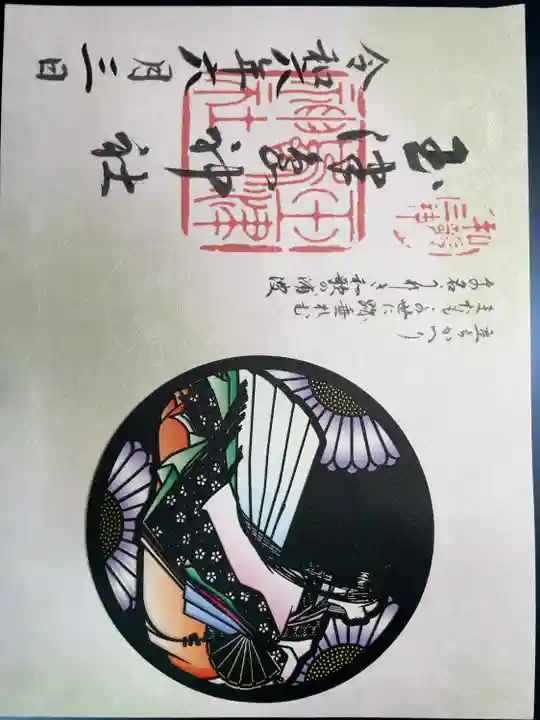 立ちかへり
またもこの世に跡垂れむ
その名うれしき和歌の浦波
和歌三神
玉津島神社
玉津島神社
令和六年六月三日